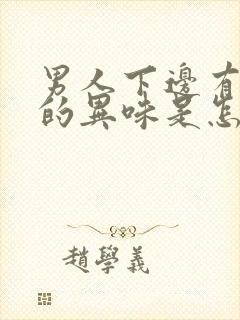 男人下邊有
的異味是怎
趙學義